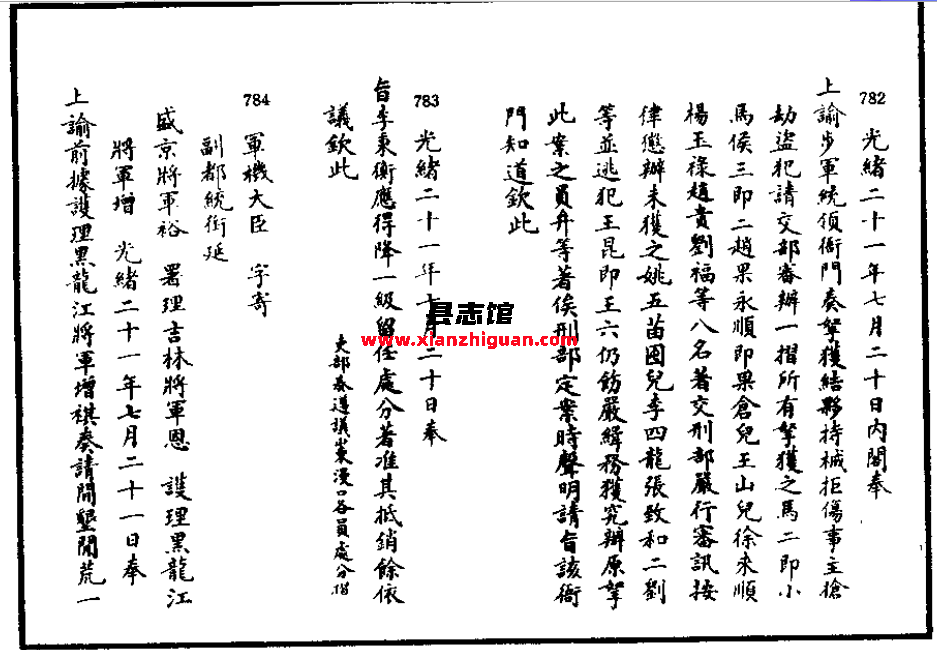 782
光緒二十一年七月二十日內閣奉
上諭步軍統領衙門奏拏獲結夥持械拒傷事主搶
劫盜犯請交部審辦一摺所有拏獲之馬二即小
馬侯三即二趙果永順即果倉兒王山兒徐來順
楊玉祿趙貴劉福等八名著交刑部嚴行審訊按
律懲辦未獲之姚五苗囤兒李四龍張致和二劉
等並逃犯王昆即王六仍飭嚴緝務獲究辦原拏
此案之員弁等著俟刑部定案時聲明請旨該衙
門知道欽此
783
光緒二十一年七月二十日奉
吏部奏遵議山東漫口各員處分摺
旨李秉衡應得降一級留任處分著准其抵銷餘依
議欽此
784
軍機大臣 字寄
副都統銜延
盛京將軍裕 署理吉林將軍恩 護理黑龍江
將軍增 光緒二十一年七月二十一日奉
上諭前據護理黑龍江將軍增祺奏請開墾閒荒一
县志馆
www.xianzhiguan.com